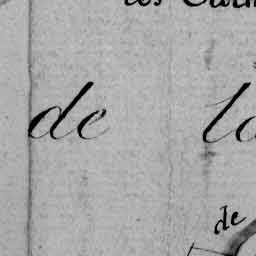 de la
de